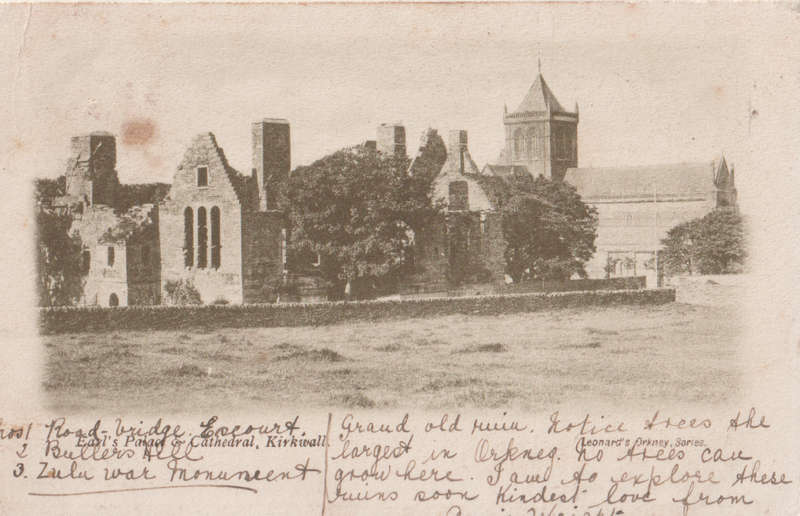 Earl's Palace & Cathedral, Kirkwall.
Leonard's Orkney Series.
Nos 1 Road-bridge. Escourt.
2 Bullers Hell
3. Zulu war Monument
Grand old ruin. Notice trees the
largest in Orkney. no trees can
grow here. I am to explore these
ruins soon kindest love from
Wright